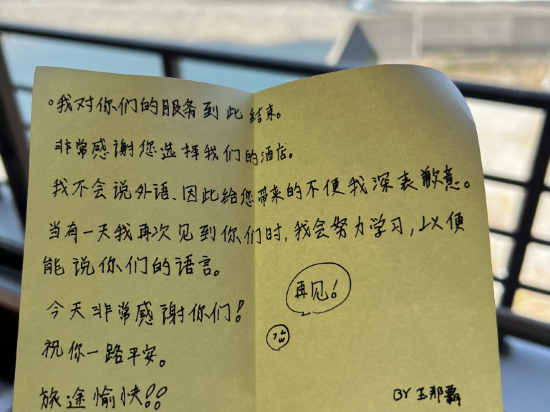 。我对你们的服务到此结束。
非常感謝您选择我们的酒店。
我不会说外语、因此给您带来的不便我深表歉意。
当有一天我再次见到你们时,我会努力学习,以便
能说你们的语言。
今天非常感謝你们!
再见!
祝你一路平安。
旅途愉快!!
BY 玉那覇